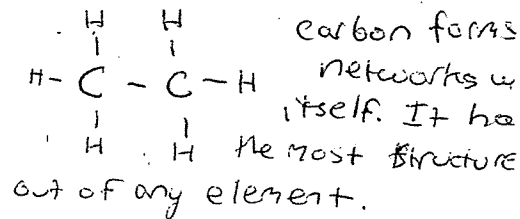 H H
H - C - C - H
H H
carbon forms
networks w
itself. It ha
the most structure
out of any element.